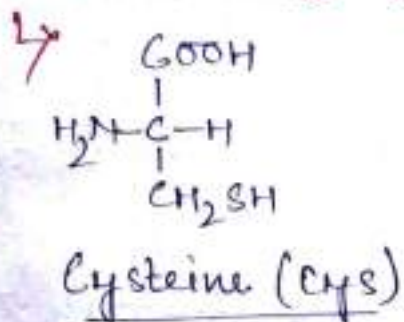 COOH
H₂N-C-H
CH₂SH
Cysteine (Cys)